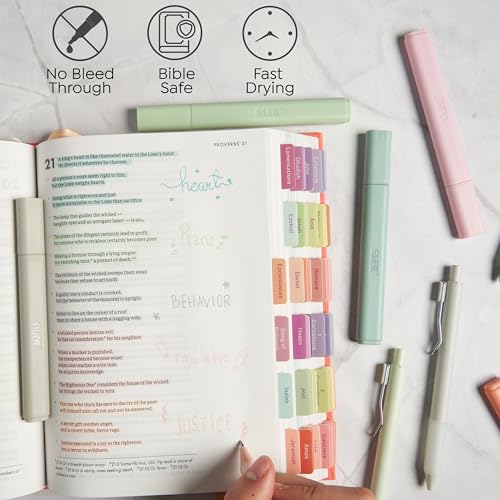 No Bleed
Through
Bible
Safe
Fast
Drying
PROVERBS 21
21 A king's heart is like channeled water in the LORD's hand:
He directs it wherever he chooses.
All a person's ways seem right to him,
but the LORD weighs hearts.
Doing what is righteous and just
is more acceptable to the LORD than sacrifice.
The lamp that guides the wicked —
haughty eyes and an arrogant heart — is sin.
The plans of the diligent certainly lead to profit,
but anyone who is reckless certainly becomes poor.
Making a fortune through a lying tongue
is a vanishing mist, a pursuit of death.
The violence of the wicked sweeps them away
because they refuse to act justly.
A guilty one's conduct is crooked,
but the behavior of the innocent is upright.
Better to live on the corner of a roof
than to share a house with a nagging wife.
A wicked person desires evil;
he has no consideration for his neighbor.
When a mocker is punished,
the inexperienced become wiser;
when one teaches a wise man,
he acquires knowledge.
The Righteous One considers the house of the wicked;
he brings the wicked to ruin.
The one who shuts his ears to the cry of the poor
will himself also call out and not be answered.
A secret gift soothes anger,
and a covert bribe, fierce rage.
Justice executed is a joy to the righteous
but a terror to evildoers.
heart
Plans
BEHAVIOR
knowledge
JUSTICE
Lamentations
Obadiah
John
Ezekiel
Jonah
Acts
Daniel
Romans
Song of
Hosea
Isaiah
Joel
Jeremiah
Amos